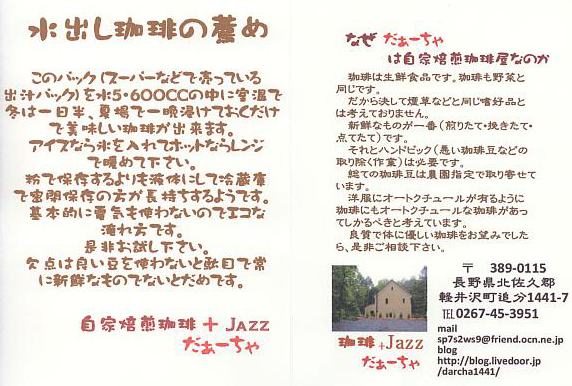 水出し珈琲の薦め
このパック(スーパーなどで売っている
出汁パック)を水5・600CCの中に室温で
冬は一日半、夏場で一晩浸けておくだけ
で美味しい珈琲が出来ます。
アイスなら氷を入れてホットならレンジ
で暖めて下さい。
粉で保存するよりも液体にして冷蔵庫
で密閉保存の方が長持ちするようです。
基本的に電気も使わないのでエコな
淹れ方です。
是非お試し下さい。
欠点は良い豆を使わないと駄目で常
に新鮮なものでないとだめです。
自家焙煎珈琲+JAZZ
だぁーちゃ
なぜ だぁーちゃ
は自家焙煎珈琲屋なのか
珈琲は生鮮食品です。珈琲も野菜と
同じです。
だから決して煙草などと同じ嗜好品と
は考えておりません。
新鮮なものが一番(煎りたて・挽きたて・
点てたて)です。
それとハンドピック(悪い珈琲豆などの
取り除く作業)は必要です。
総ての珈琲豆は農園指定で取り寄せて
います。
洋服にオートクチュールが有るように
珈琲にもオートクチュールな珈琲があっ
てしかるべきと考えています。
良質で体に優しい珈琲をお望みでした
ら、是非ご相談下さい。
珈琲+Jazz
だぁーちゃ
〒 389-0115
長野県北佐久郡
軽井沢町追分1441-7
TEL0267-45-3951
mail
sp7s2ws9@friend.ocn.ne.jp
blog
http://blog.livedoor.jp
/darcha1441/